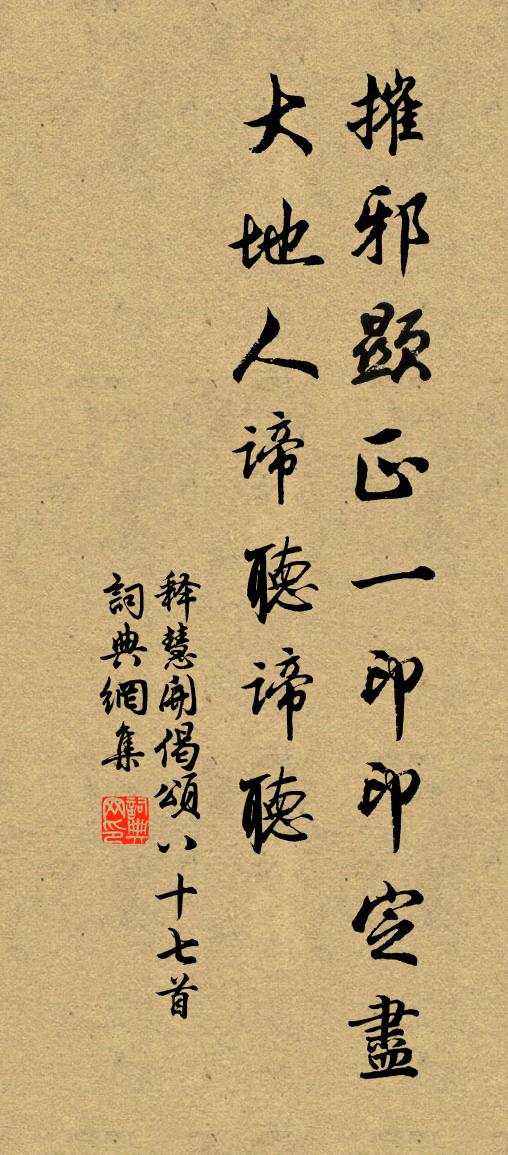 摧邪顯正一印印定盡
大地人諦聽諦聽
释慧開偈頌八十七首
詞典網集
詞典网印